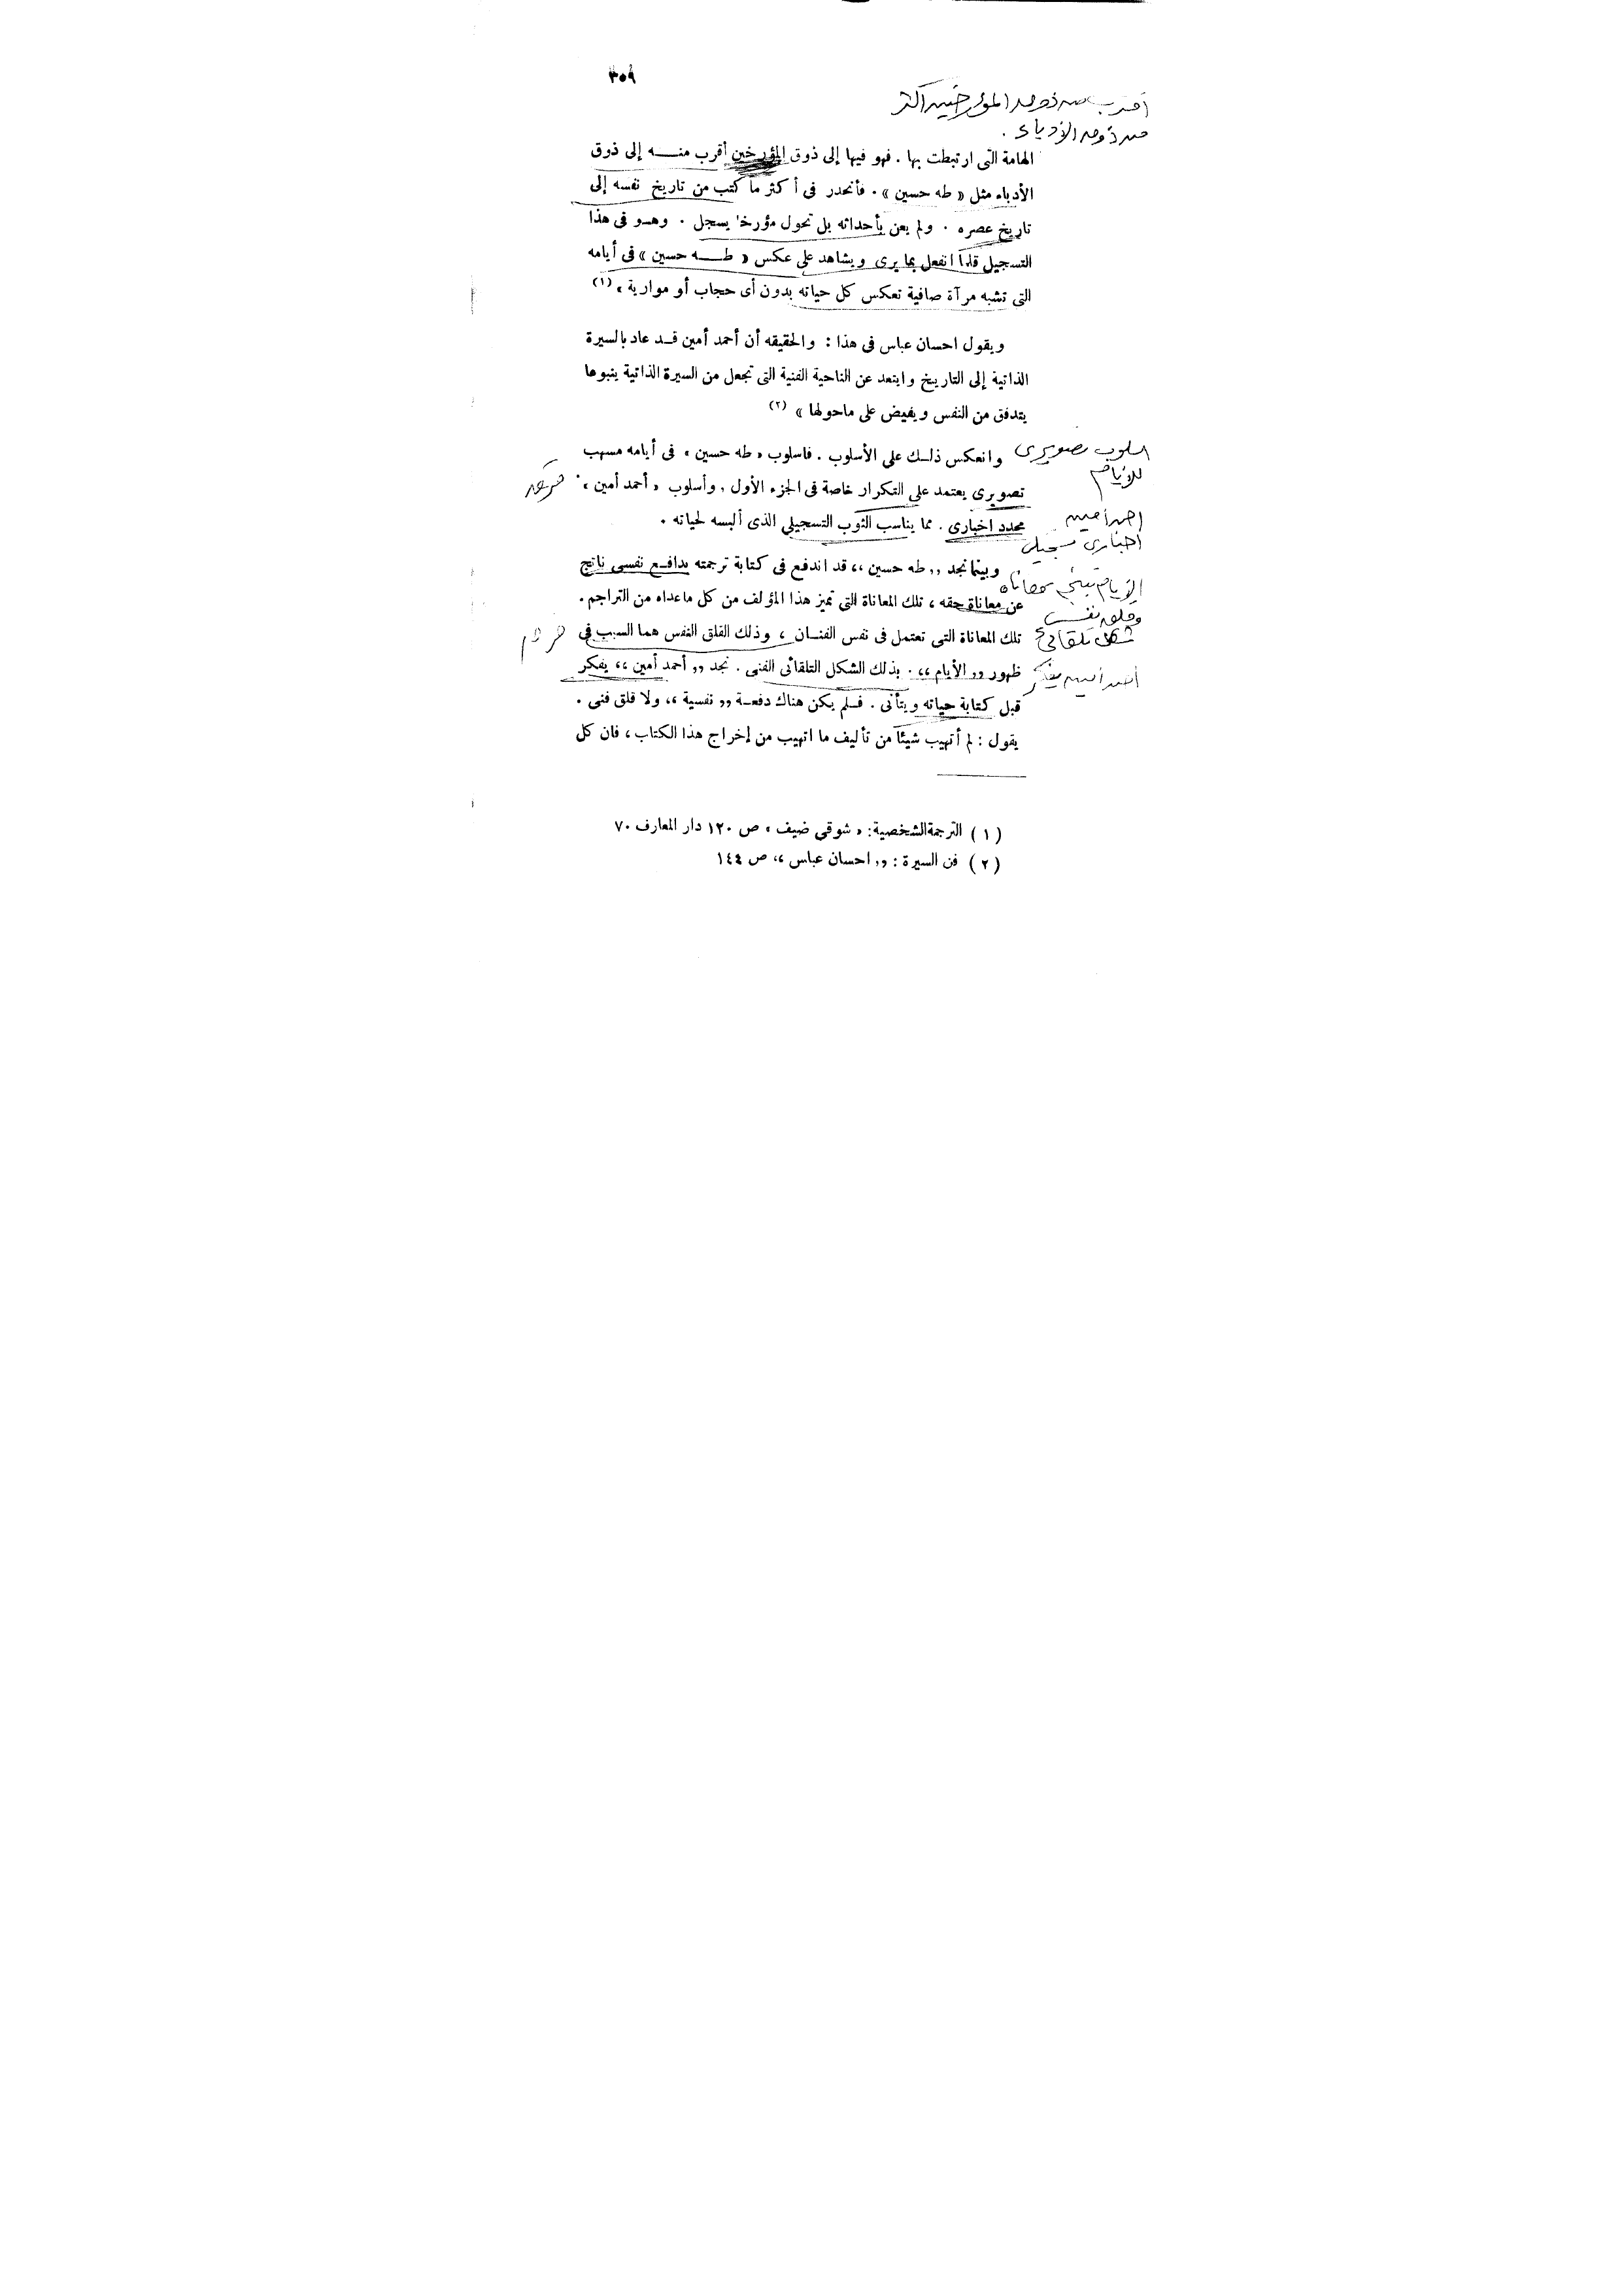 ٣٥٩
أقرب من ذوق المؤرخين أكثر
من ذوق الأدباء .
الهامة التى ارتبطت بها . فهو فيها إلى ذوق المؤرخين أقرب منه إلى ذوق
الأدباء مثل « طه حسين » . فأنحدر فى أكثر ما كتب من تاريخ نفسه إلى
تاريخ عصره . ولم يعن بأحداثه بل تحول مؤرخا يسجل . وهو فى هذا
التسجيل قلما انفعل بما يرى ويشاهد على عكس « طه حسين » فى أيامه
التى تشبه مرآة صافية تعكس كل حياته بدون أى حجاب أو مواربة » (١)
ويقول احسان عباس فى هذا : والحقيقه أن أحمد أمين قد عاد بالسيرة
الذاتية إلى التاريخ وابتعد عن الناحية الفنية التى تجعل من السيرة الذاتية ينبوعا
يتدفق من النفس ويفيض على ماحولها » (٢)
اسلوب تصويرى
للأيام
وانعكس ذلك على الأسلوب . فاسلوب « طه حسين » فى أيامه مسهب
تصويرى يعتمد على التكرار خاصة فى الجزء الأول . وأسلوب « أحمد أمين »
محدد اخبارى . مما يناسب الثوب التسجيلي الذى ألبسه لحياته .
احمد امين
اخبارى تسجيلى
وبينما نجد ,, طه حسين ،، قد اندفع فى كتابة ترجمته بدافع نفسى ناتج
عن معاناة حقه ، تلك المعاناة التى تميز هذا المؤلف من كل ماعداه من التراجم .
تلك المعاناة التى تعتمل فى نفس الفنان ، وذلك القلق النفس هما السبب فى
ظهور ,, الأيام ،، . بذلك الشكل التلقائى الفنى . نجد ,, أحمد أمين ،، يفكر
قبل كتابة حياته ويتأنى . فلم يكن هناك دفعة ,, نفسية ،، ولا قلق فنى .
يقول : لم أتهيب شيئاً من تأليف ما اتهيب من إخراج هذا الكتاب ، فان كل
الأيام معاناه
وقلق نفسى
شكل تلقائى
أحمد أمين يفكر
( ١ ) الترجمة الشخصية : « شوقي ضيف » ص ١٢٠ دار المعارف ٧٠
( ٢ ) فن السيرة : ,, احسان عباس ،، ص ١٤٤